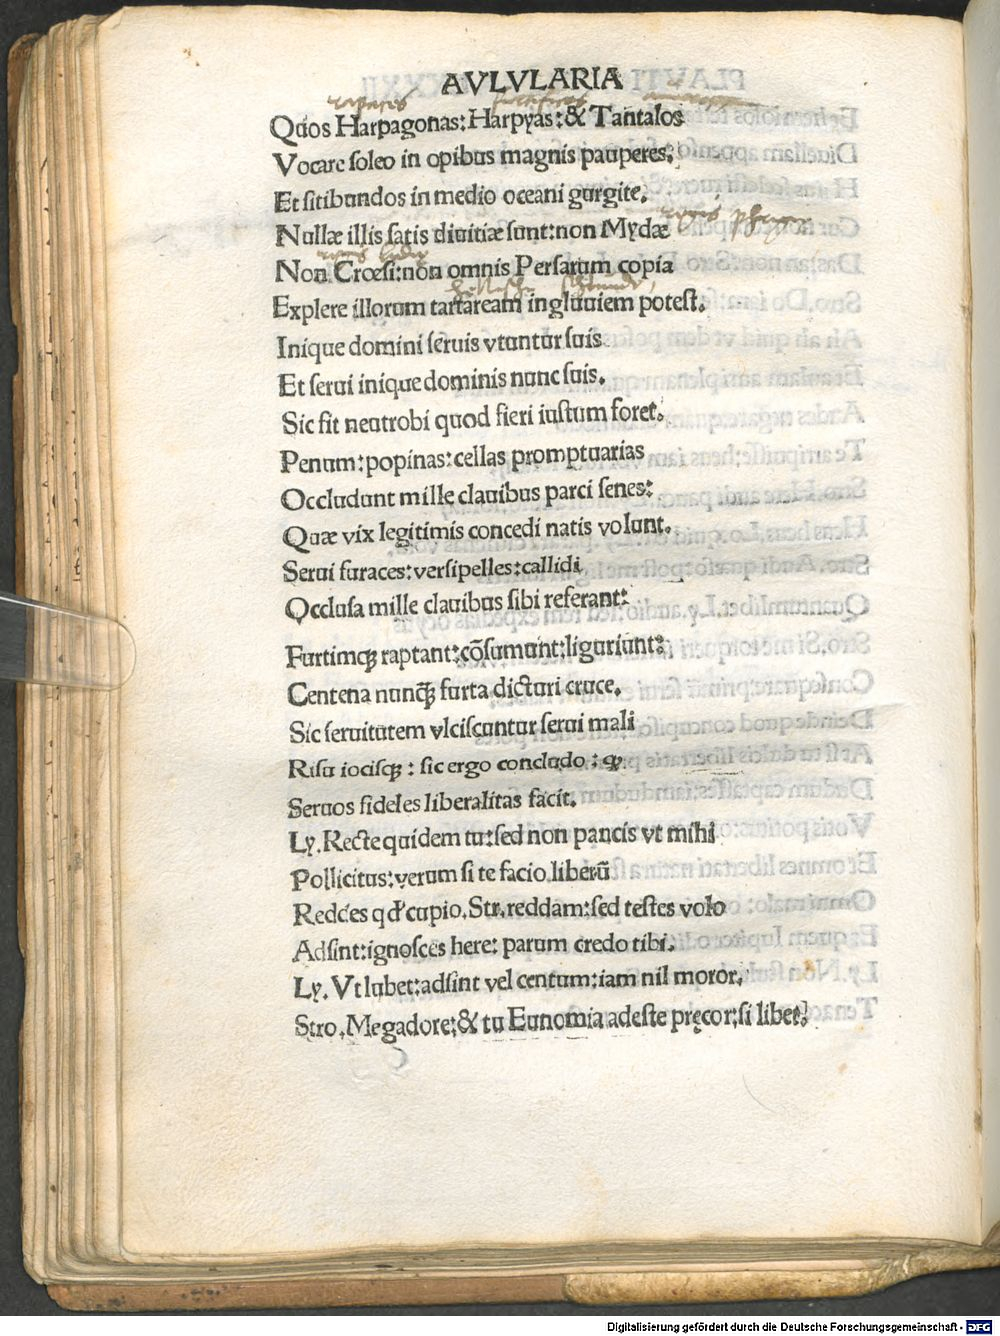 AVLVLARIA
Quos Harpagonas: Harpyas: & Tantalos
Vocare soleo in opibus magnis pauperes:
Et sitibundos in medio oceani gurgite.
Nullæ illis satis diuitiæ sunt: non Mydæ
Non Crœsi: non omnis Persarum copia
Explere illorum tartaream ingluuiem potest.
Inique domini seruis vtuntur suis.
Et serui inique dominis nunc suis.
Sic fit neutrobi quod fieri iustum foret.
Penum: popinas: cellas promptuarias
Occludunt mille clauibus parci senes:
Quæ vix legitimis concedi natis volunt.
Serui furaces: versipelles: callidi
Occlusa mille clauibus sibi referant:
Furtimꝙ raptant: cõsumunt: liguriunt:
Centena nunꝙ̃ furta dicturi cruce.
Sic seruitutem vlciscuntur serui mali
Risu iocisꝙ : sic ergo concludo : ꝙ
Seruos fideles liberalitas facit.
Ly. Recte quidem tu: sed non paucis vt mihi
Pollicitus: verum si te facio liberũ
Reddes qd̛ cupio. Str. reddam: sed testes volo
Adsint: ignosces here: parum credo tibi.
Ly. Vt lubet: adsint vel centum: iam nil moror.
Stro. Megadore: & tu Eunomia adeste pręcor: si libet.
Digitalisierung gefördert durch die Deutsche Forschungsgemeinschaft - DFG